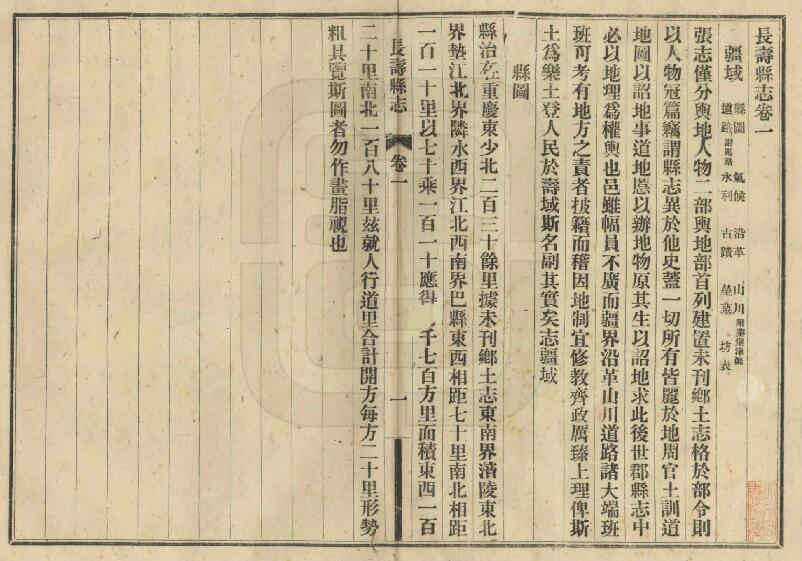 長壽縣志卷一
疆域 縣圖 氣候 沿革 山川附寨堡津梁
道路附馬路 水利 古蹟 塋墓 坊表
張志僅分輿地人物二部輿地部首列建置未刊鄉土志格於部令則
以人物冠篇竊謂縣志異於他史蓋一切所有皆麗於地周官土訓道
地圖以詔地事道地慝以辦地物原其生以詔地求此後世郡縣志中
必以地理爲權輿也邑雖幅員不廣而疆界沿革山川道路諸大端班
班可考有地方之責者披籍而稽因地制宜修教齊政厲臻上理俾斯
土爲樂土登人民於壽域斯名副其實矣志疆域
縣圖
縣治在重慶東少北二百三十餘里據未刊鄉土志東南界涪陵東北
界墊江北界隣水西界江北西南界巴縣東西相距七十里南北相距
一百一十里以七十乘一百一十應得 千七百方里面積東西一百
長壽縣志 卷一 一
二十里南北一百八十里茲就人行道里合計開方每方二十里形勢
粗具覽斯圖者勿作畫脂視也